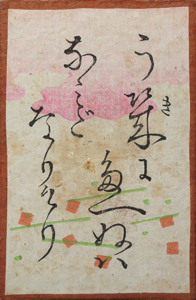 うきに
たへぬハ
なみだ
なりけり